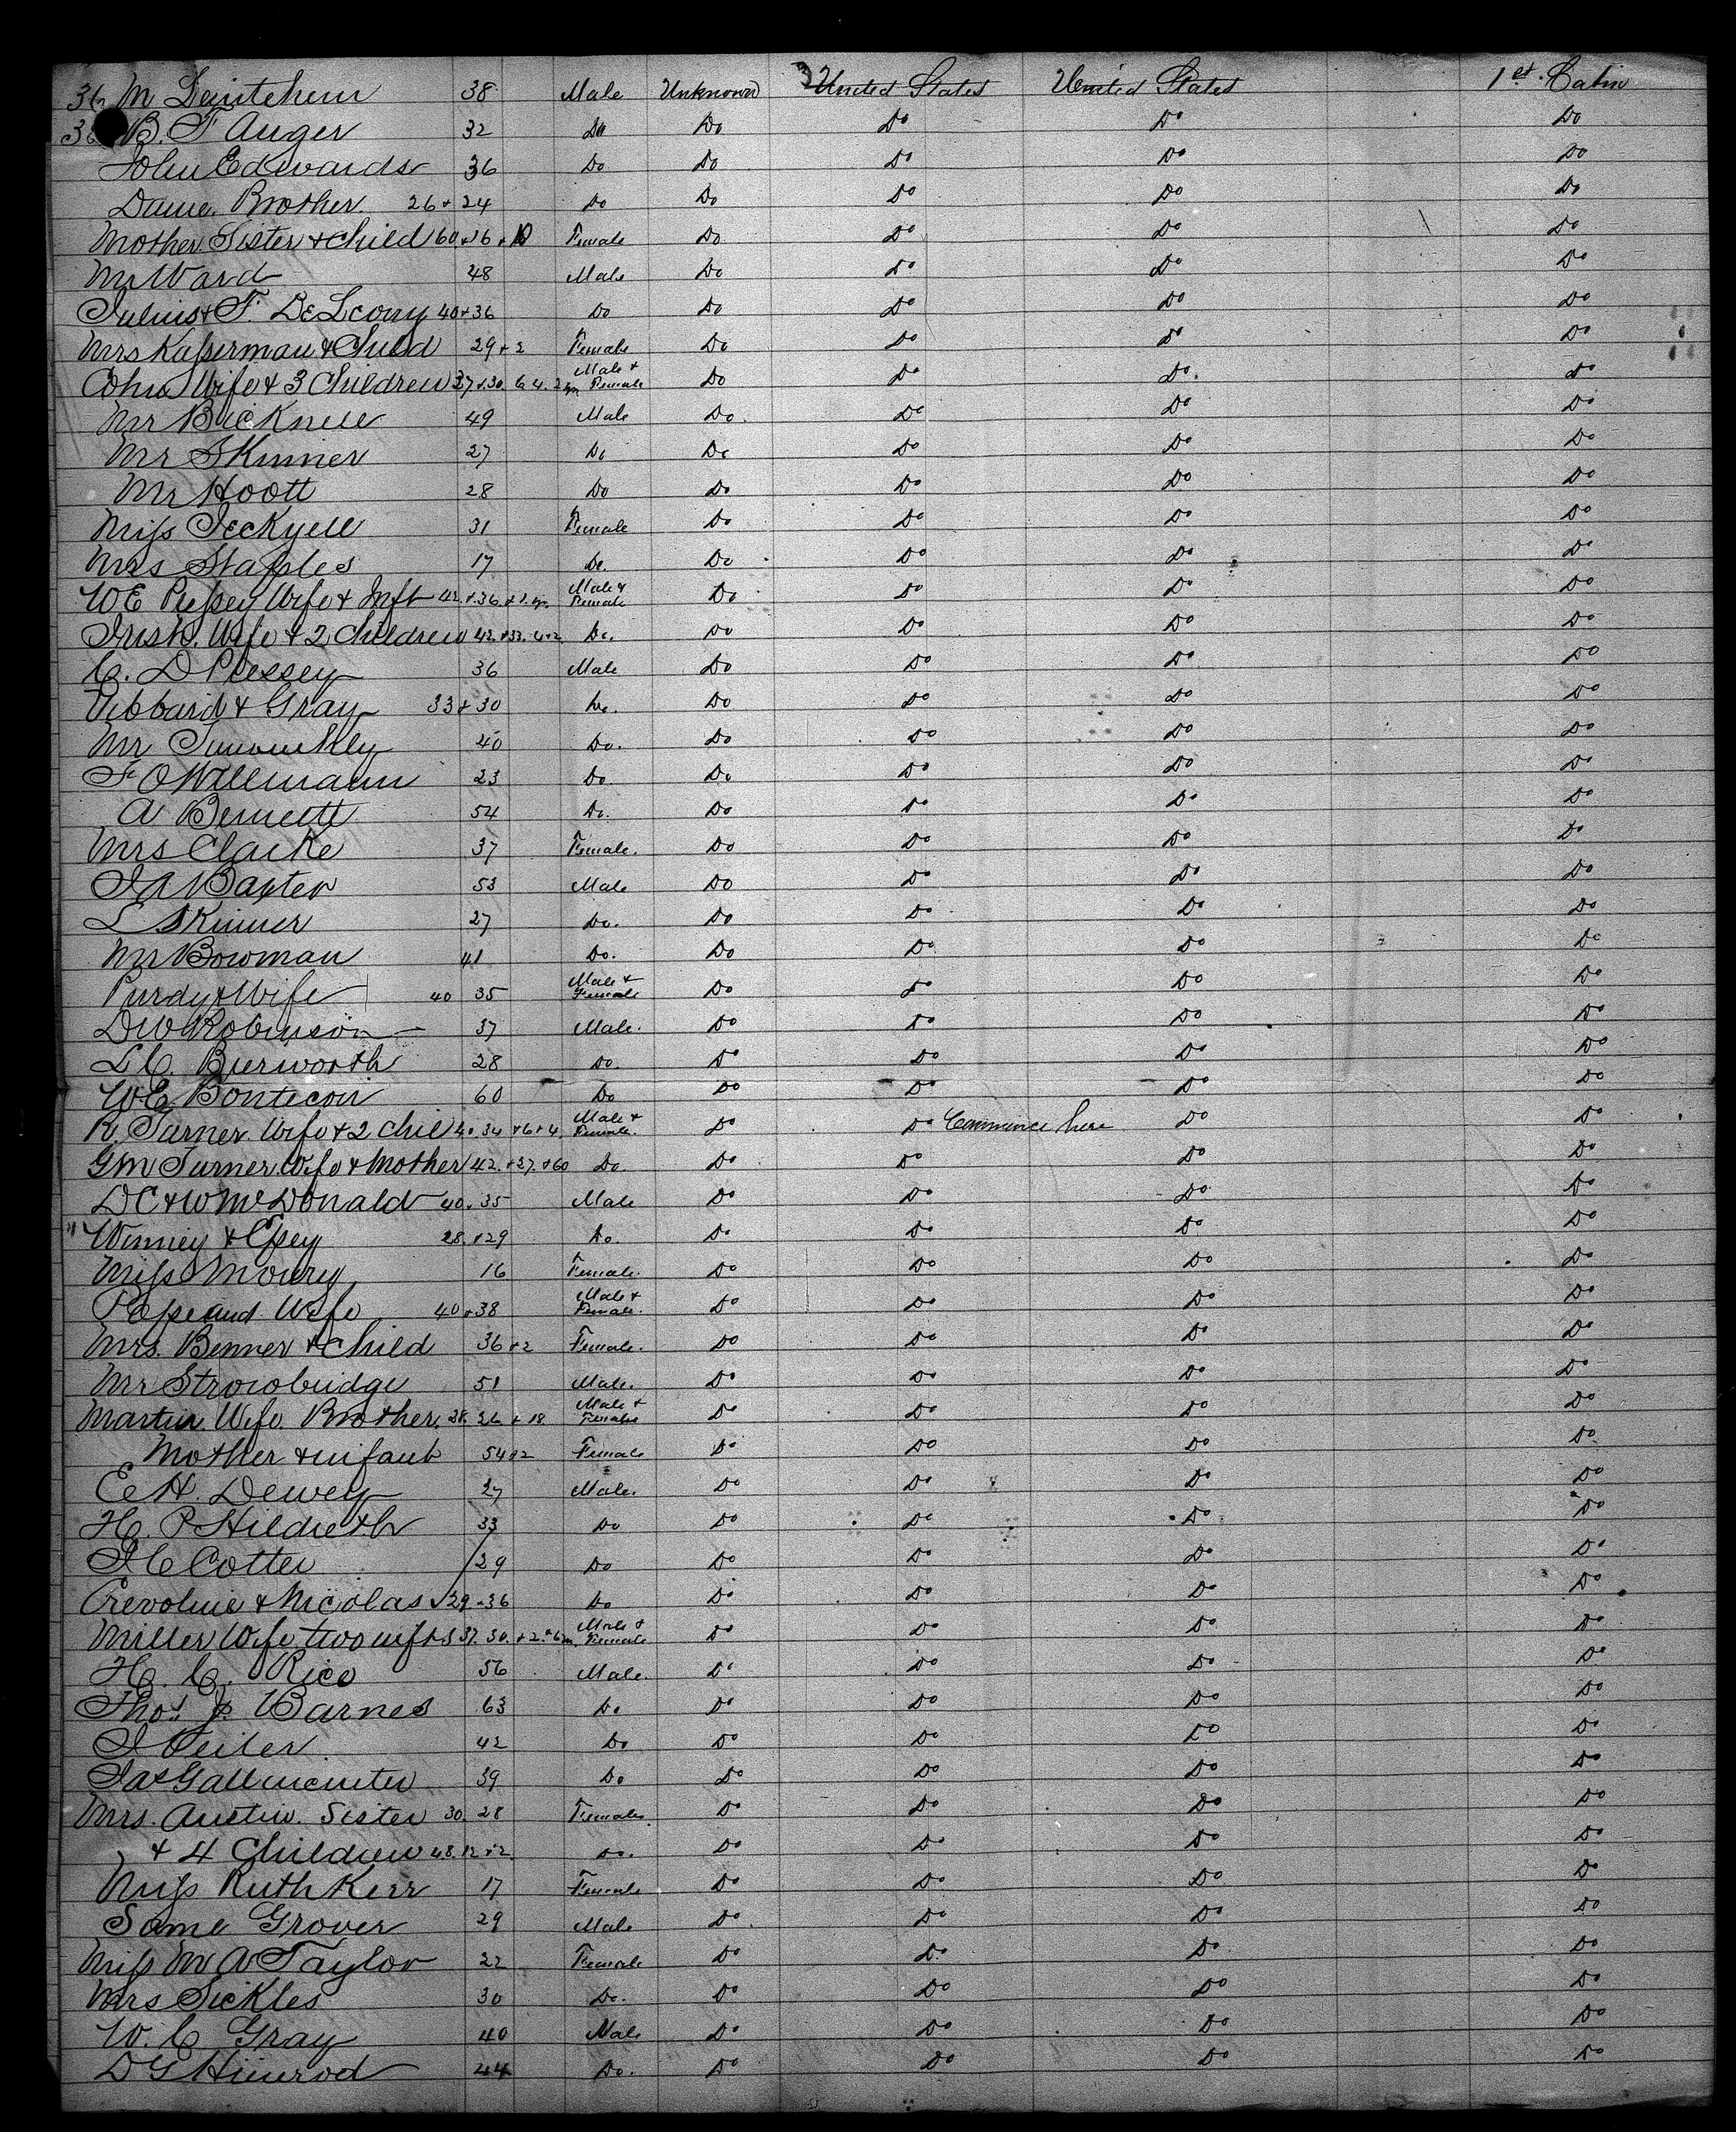 36 M 38 Male Unknown United States United States 1st Cabin
36 B. F Auger 32 Do Do Do Do Do
John Edwards 36 Do Do Do Do Do
Dame. Brother. 26 + 24 Do Do Do Do Do
Mother Sister + Child 60 + 36 + 10 Female Do Do Do Do
Mr Ward 48 Male Do Do Do Do
Julius + F. DeLeony 40 + 36 Do Do Do Do Do
Mrs Kasserman & Child 29 + 2 Female Do Do Do Do
Cohn Wife + 3 Children 37 + 30. 6 4. 2 Male + Female Do Do Do. Do
Mr Bicknell 49 Male Do Do Do Do
Mr Skinner 27 Do Do Do Do Do
Mr Hoott 28 Do Do Do Do Do
Miss Jeckyell 31 Female Do Do Do Do
Mrs Staples 17 Do. Do Do Do Do
W E Wife + Inft 42. + 36. + 1. Male + Female Do Do Do Do
Irish. Wife + 2 Children 42. + 32. 4 + 2 Do. Do Do Do Do
C. D Plessey 36 Male Do Do Do Do
Vibbard & Gray 33 + 30 Do. Do Do Do Do
Mr 40 Do. Do Do Do Do
F O Willmann 23 Do Do Do Do Do
A Bennett 54 Do. Do Do Do Do
Mrs Clarke 37 Female. Do Do Do Do
J A Baxter 53 Male Do Do Do Do
L Skinner 27 Do. Do Do Do Do
Mr Bowman 41 Do. Do Do Do Do
Purdy & Wife 40 35 Male + Female Do Do Do Do
D W Robinson 37 Male. Do Do Do Do
L C. Burworth 28 Do. Do Do Do Do
W. E. Bontecou 60 Do Do Do Do Do
R. Turner. Wife + 2 Chil 40. 34 + 6 + 4 Male + Female. Do Do Commence here Do Do
G M Turner. Wife + Mother 42. + 37. + 60 Do Do Do Do Do
D C & W McDonald 40. 35 Male Do Do Do Do
" Winney & Espey 28. + 29 Do. Do Do Do Do
Miss Moury 16 Female. Do Do Do Do
Posse and Wife 40 + 38 Male + Female. Do Do Do Do
Mrs. Benner + Child 36 + 2 Female. Do Do Do Do
Mr Strowbridge 51 Male. Do Do Do Do
Martin. Wife. Brother. 28. 26 + 18 Male + Female Do Do Do Do
Mother + infant 54 + 2 Female Do Do Do Do
E H. Dewey 27 Male. Do Do Do Do
H. P Hildreth 33 Do Do Do Do Do
J C Cotter 29 Do Do Do Do Do
Crevoline & Nicolas 29 - 36 Do Do Do Do Do
Miller Wife. two infts 37. 30. + 2. + 6m Male + Female Do Do Do Do
H. C. Rico 56 Male. Do Do Do Do
Thos. J. Barnes 63 Do Do Do Do Do
J Feiler. 42 Do Do Do Do Do
39 Do Do Do Do Do
Mrs. Austin. Sister 30. 28 Female. Do Do Do Do
+ 4 Children 4. 8. 12 + 2. Do. Do Do Do Do
Miss Ruth Kerr 17 Female Do Do Do Do
Same Grover 29 Male Do Do Do Do
Miss M A Taylor 22 Female Do Do Do Do
Mrs Sickles 30 Do. Do Do Do Do
W. C Gray 40 Male Do Do Do Do
D G Himrod 44 Do. Do Do Do Do